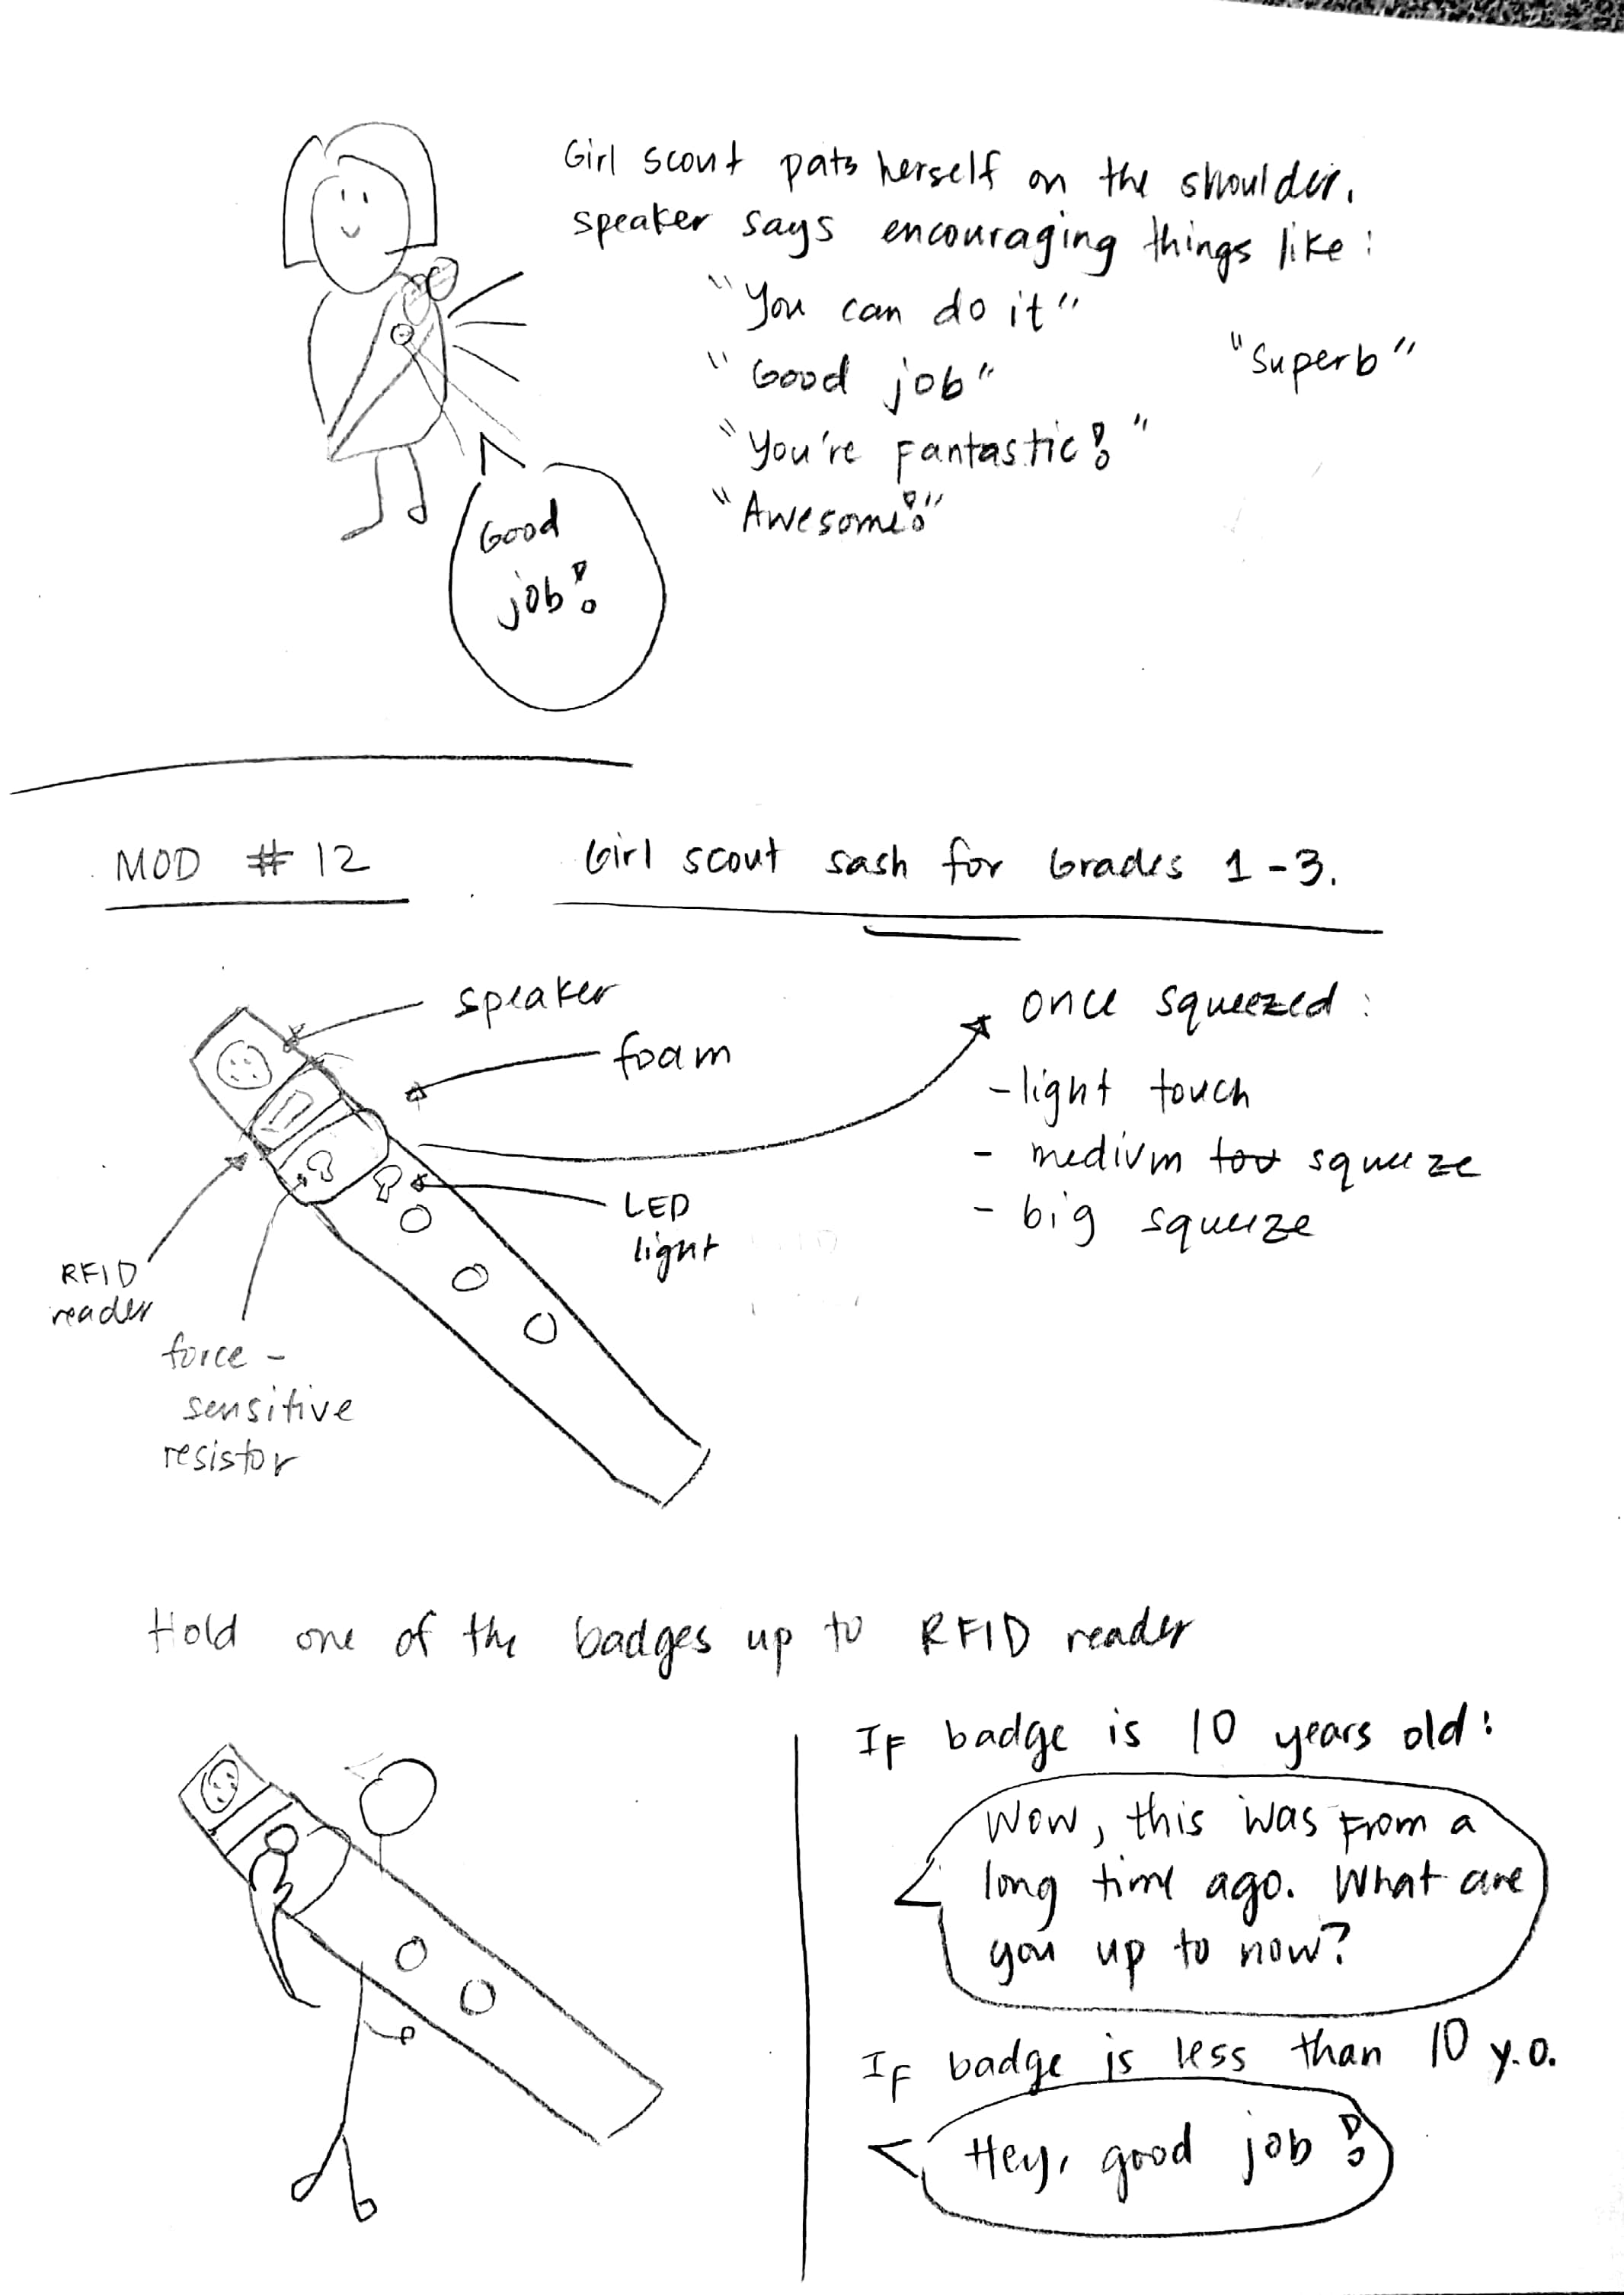 Girl scout pats herself on the shoulder.
speaker says encouraging things like:
"You can do it"
"Superb"
"Good job"
"You're Fantastic!"
"Awesome!"
Good
job!
MOD #12
Girl scout sash for Grades 1-3.
speaker
foam
LED
light
RFID
reader
force-
sensitive
resistor
once squeezed:
- light touch
- medium tou squeeze
- big squeeze
Hold one of the badges up to RFID reader
If badge is 10 years old:
Wow, this was From a
long time ago. What are
you up to now?
If badge is less than 10 y.o.
Hey, good job!